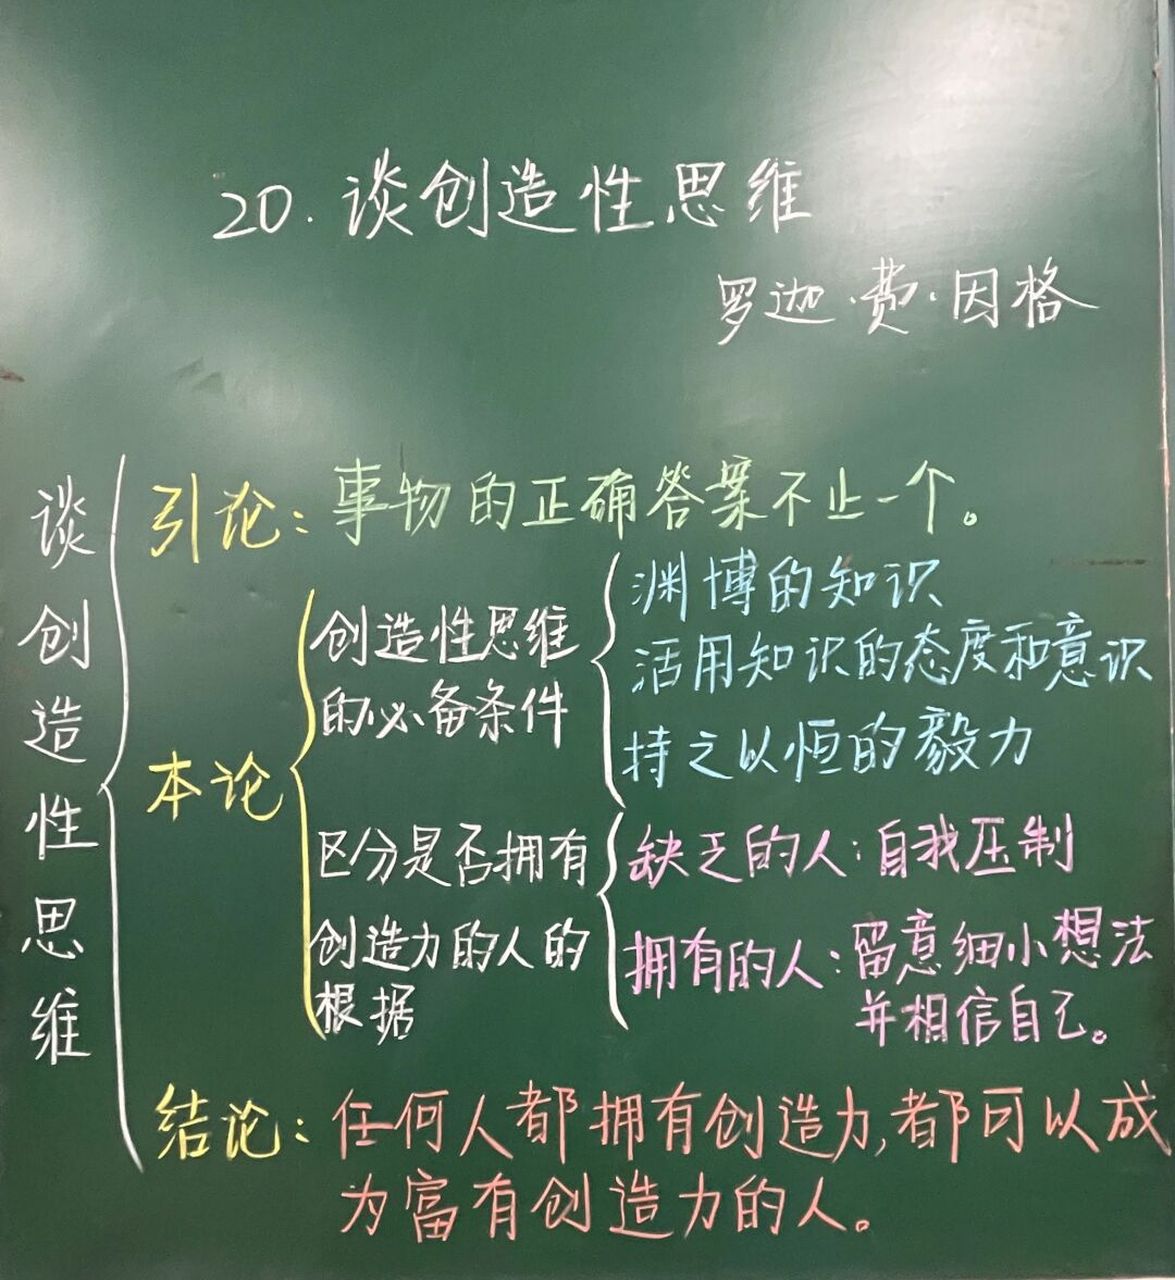 20.谈创造性思维
罗迦·费·因格
谈创造性思维
引论：事物的正确答案不止一个。
本论
创造性思维
的必备条件
渊博的知识
活用知识的态度和意识
持之以恒的毅力
区分是否拥有
创造力的人的
根据
缺乏的人：自我压制
拥有的人：留意细小想法
并相信自己。
结论：任何人都拥有创造力,都可以成
为富有创造力的人。